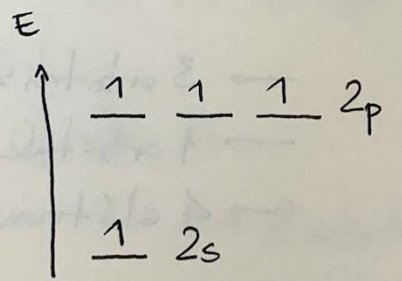 E
1 1 1 2p
1 2s